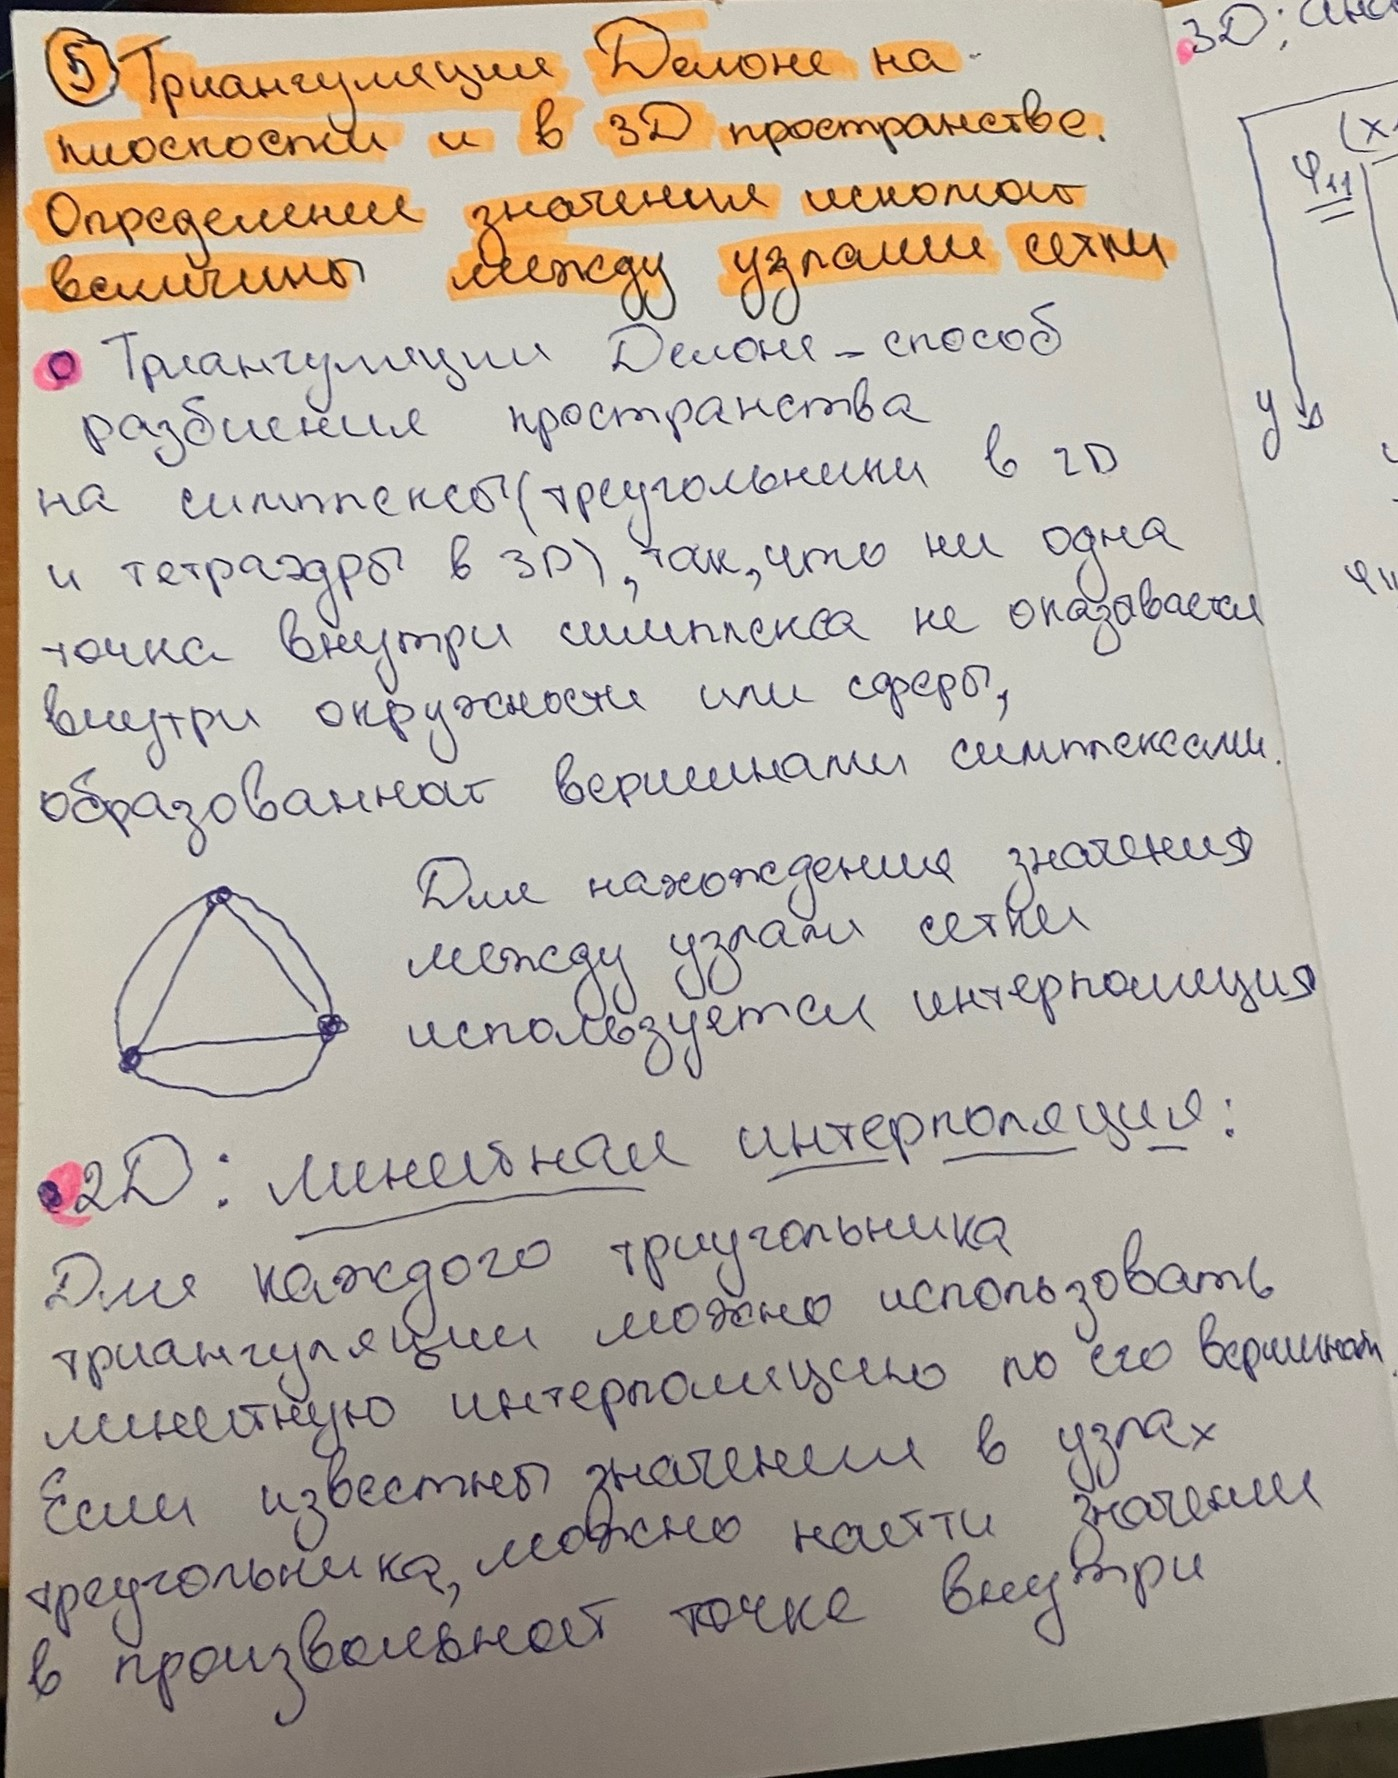 5 Триангуляция Делоне на
плоскости и в 3D пространстве.
Определение значения искомой
величины между узлами сетки
Триангуляции Делоне - способ
разбиения пространства
на симплексы (треугольники в 2D
и тетраэдры в 3D), так, что ни одна
точка внутри симплекса не оказывается
внутри окружности или сферы,
образованной вершинами симплексами.
Для нахождения значения
между узлами сетки
используется интерполяция
2D: линейная интерполяция:
Для каждого триугольника
триангуляции можно использовать
линейную интерполяцию по его вершинам
Если известны значения в узлах
треугольника, можно найти значения
в произвольной точке внутри
3D:
(x
φ11
y